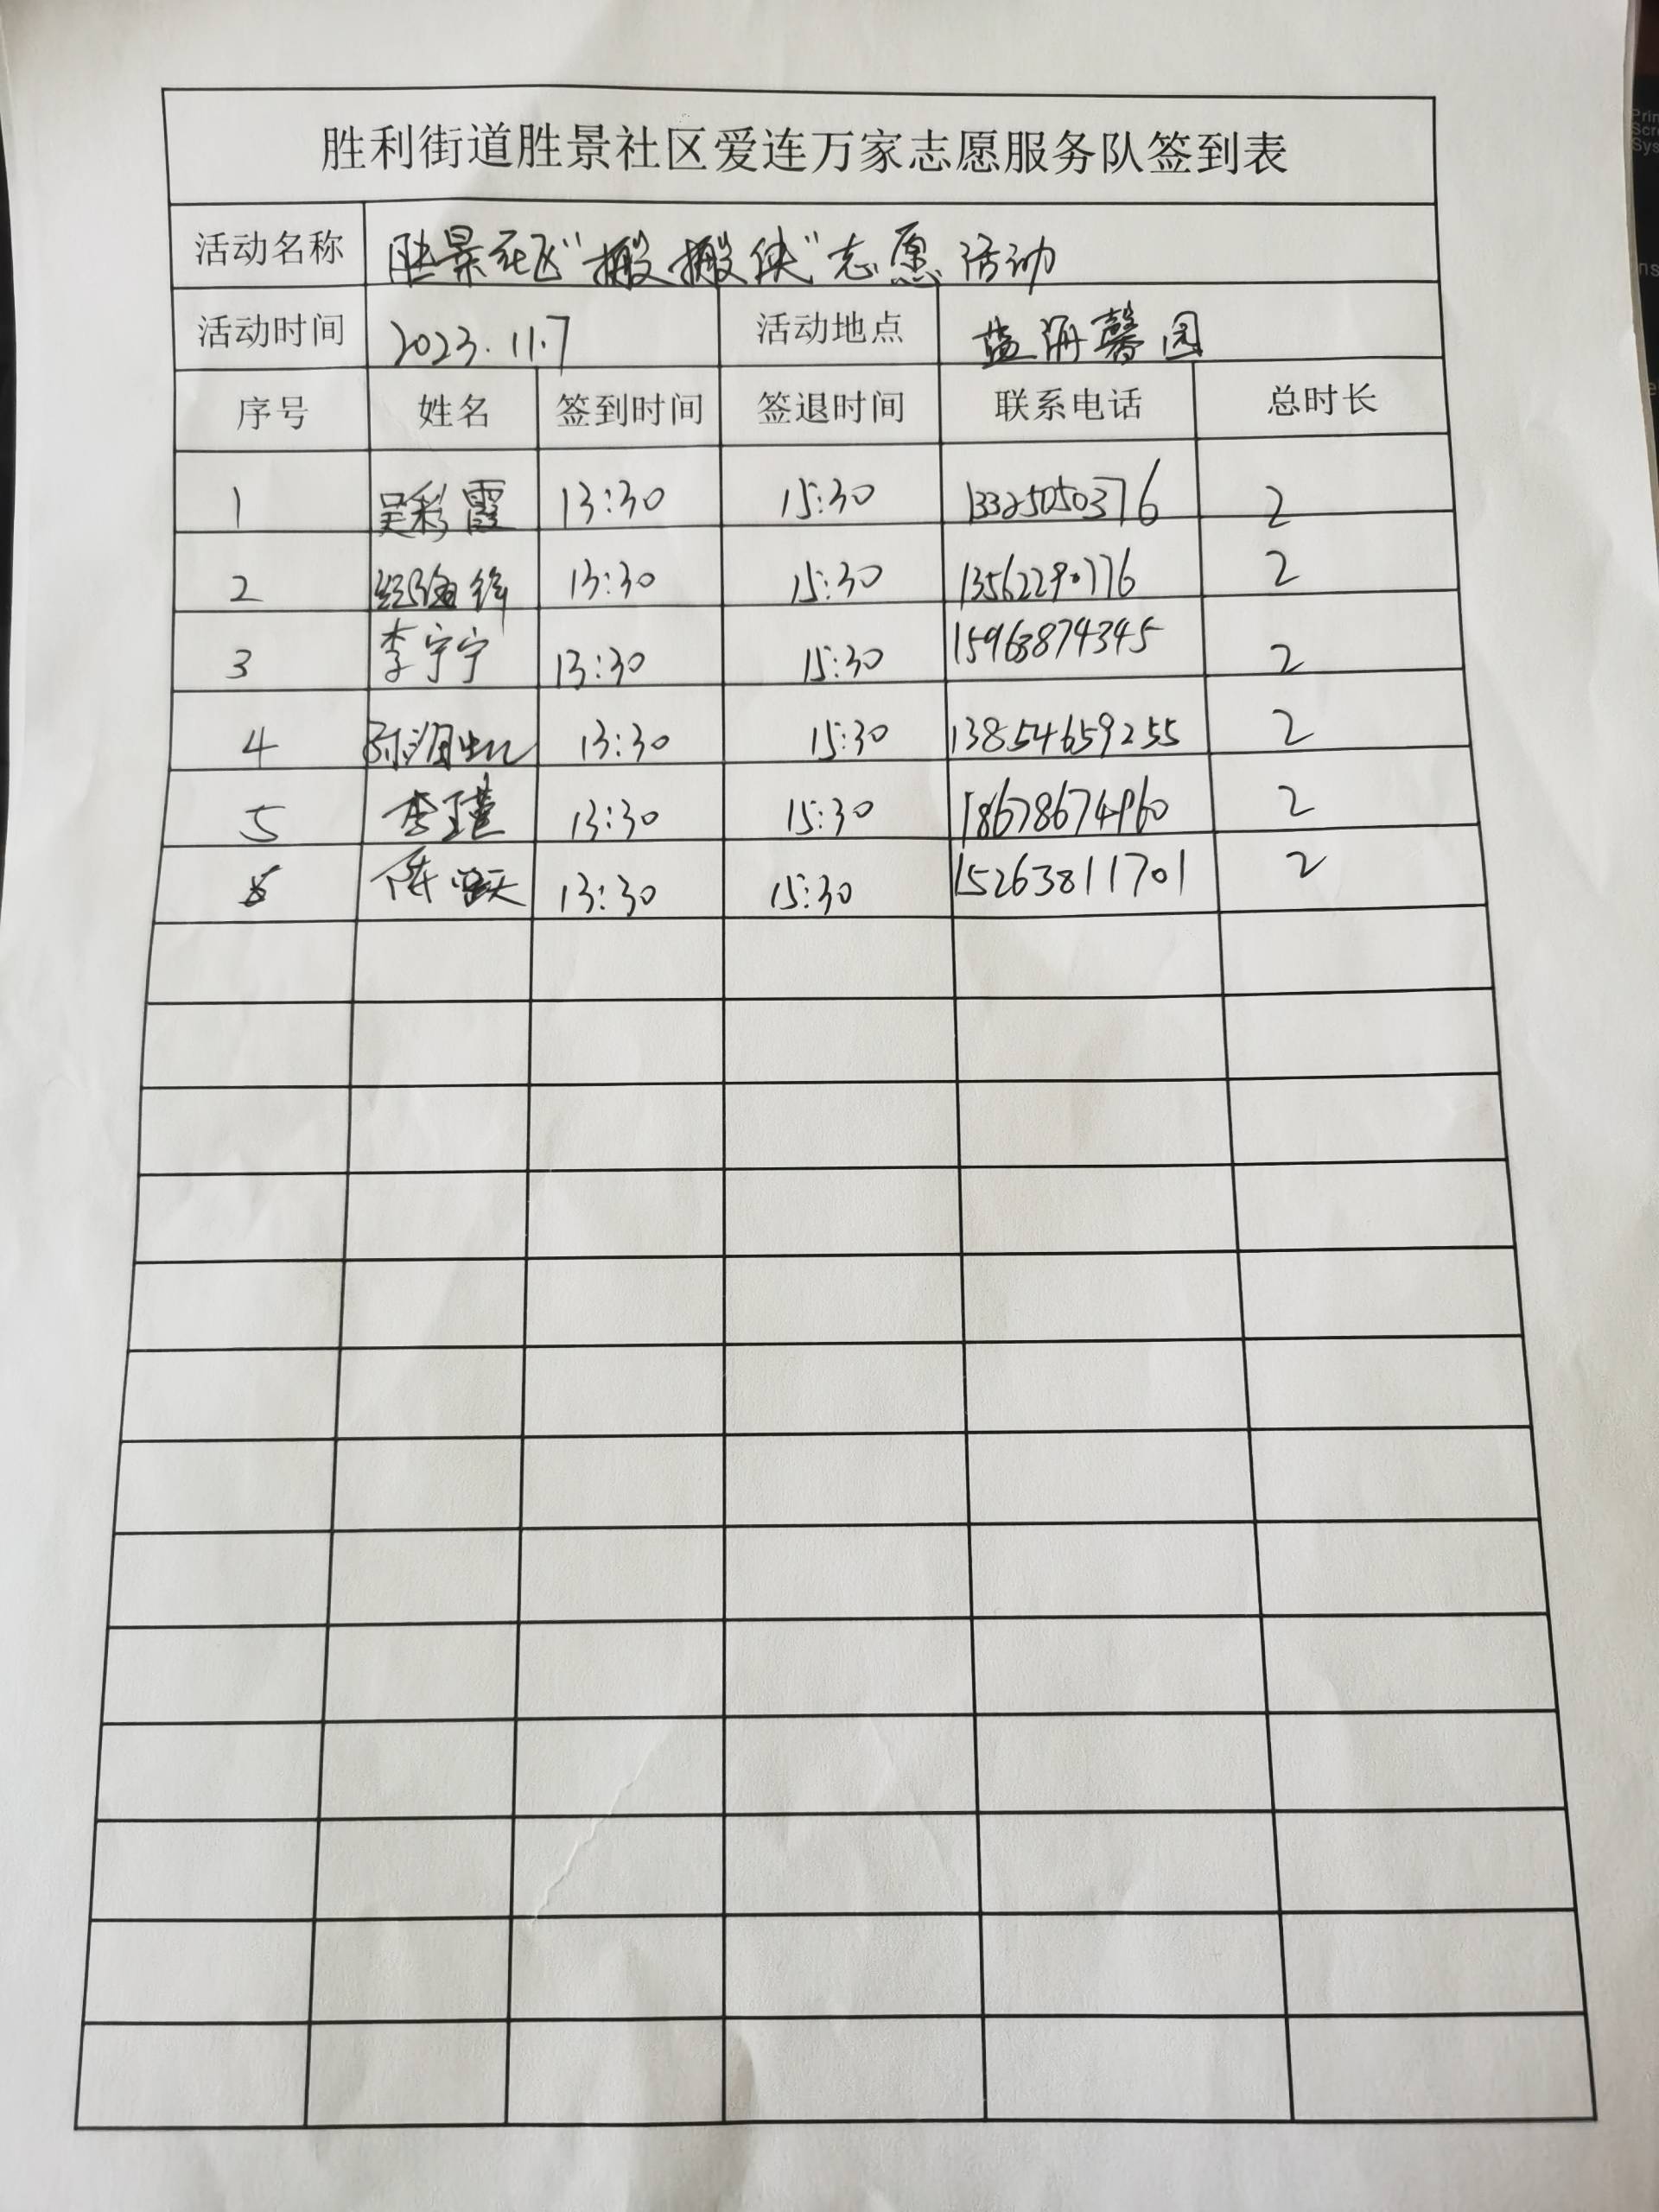 胜利街道胜景社区爱连万家志愿服务队签到表
活动名称 胜景社区“搬搬侠”志愿活动
活动时间 2023.11.7 活动地点 蓝海馨园
序号 姓名 签到时间 签退时间 联系电话 总时长
1 吴彩霞 13:30 15:30 13325050376 2
2 13:30 15:30 13562290776 2
3 李宁宁 13:30 15:30 15963874345 2
4 13:30 15:30 13854659255 2
5 李瑾 13:30 15:30 18678674960 2
6 13:30 15:30 15263811701 2